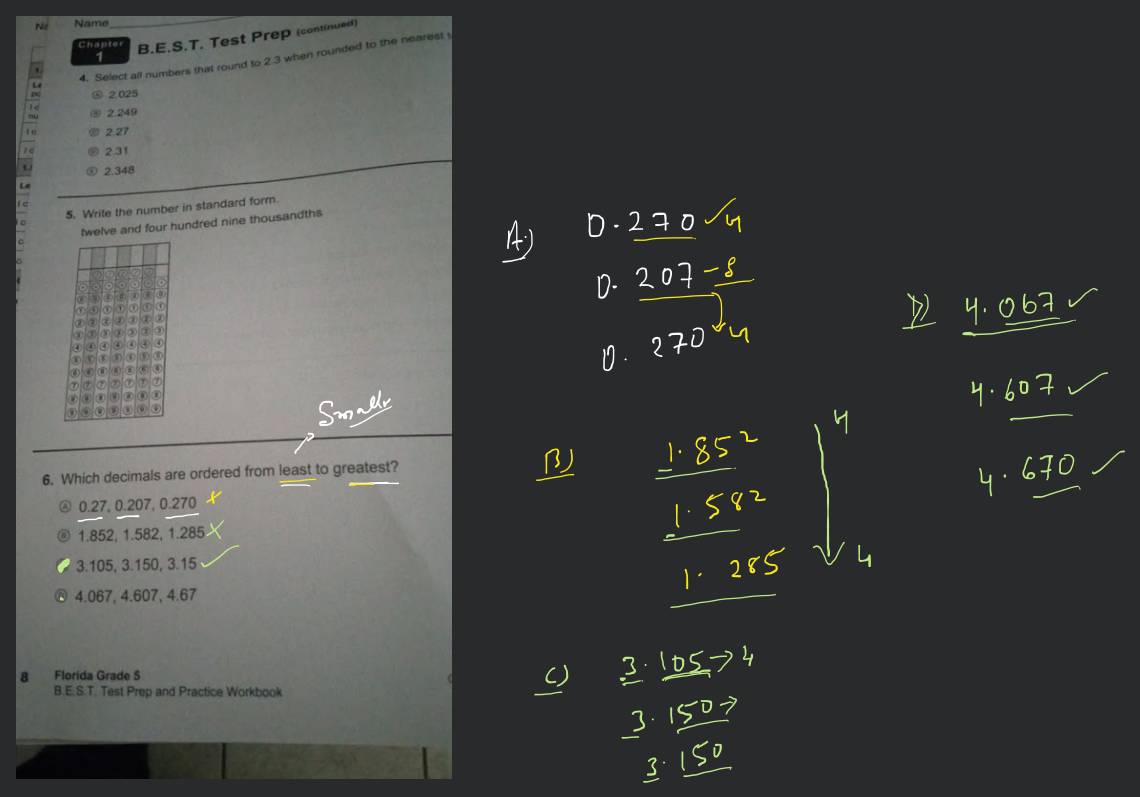 Name
Chapter 1 B.E.S.T. Test Prep (continued)
4. Select all numbers that round to 2.3 when rounded to the nearest
Ⓐ 2.025
Ⓑ 2.249
Ⓒ 2.27
Ⓓ 2.31
Ⓔ 2.348
5. Write the number in standard form.
twelve and four hundred nine thousandths
Smaller
6. Which decimals are ordered from least to greatest?
Ⓐ 0.27, 0.207, 0.270 ✗
Ⓑ 1.852, 1.582, 1.285 ✗
3.105, 3.150, 3.15 ✓
Ⓓ 4.067, 4.607, 4.67
8 Florida Grade 5
B.E.S.T. Test Prep and Practice Workbook
A) 0.270 ✓ 4
0.207 - S
0.270 4
B) 1.852 4
1.582
1.285 4
C) 3.105 → 4
3.150 →
3.150
D) 4.067 ✓
4.607 ✓
4.670 ✓